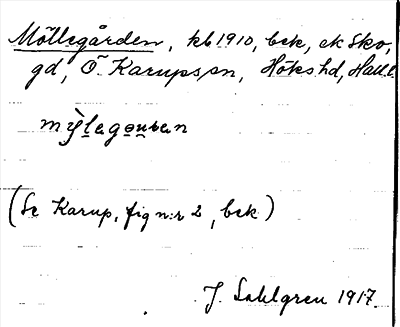 Möllegården, kb 1910, bek, ek Sko,
gd, Ö. Karups sn, Höks hd, Hall. l.
mỳlegọụban
(Se Karup, fig n:r 2, bek)
J. Sahlgren 1917.